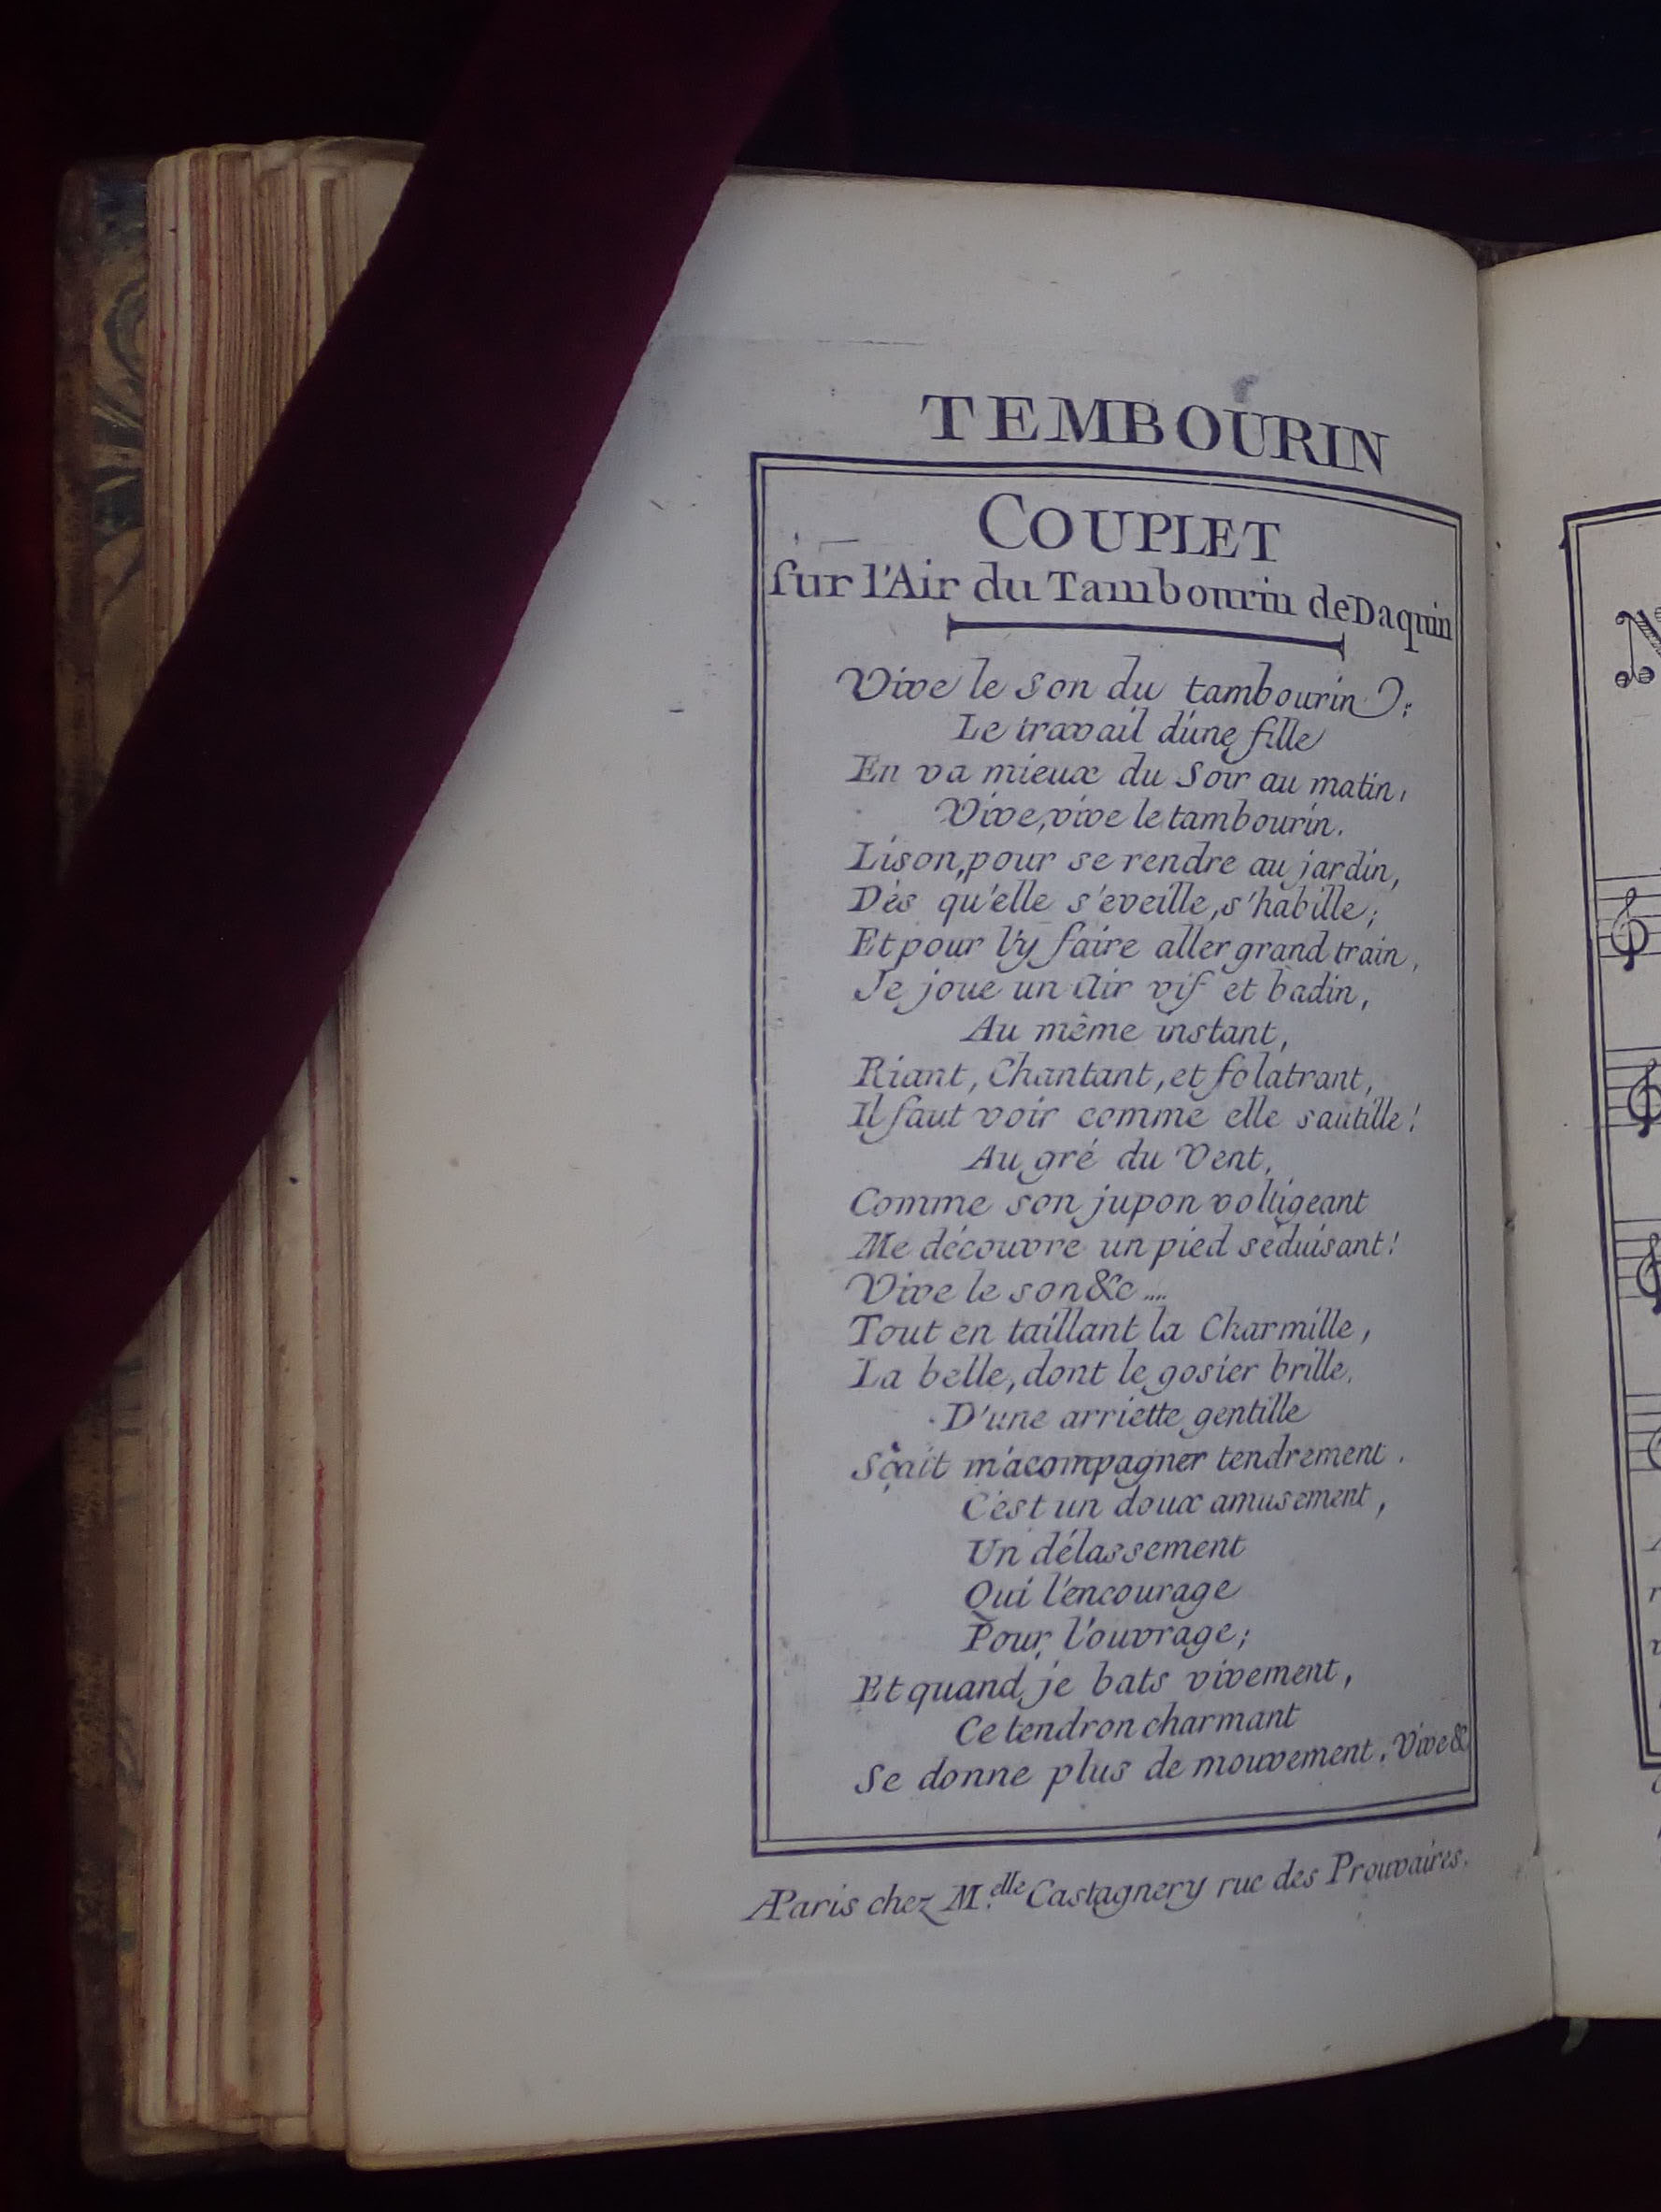 TEMBOURIN
COUPLET
sur l'Air du Tambourin de Daquin
Vive le son du tambourin;
Le travail d'une fille
En va mieux du Soir au matin,
Vive, vive le tambourin.
Lison, pour se rendre au jardin,
Dès qu'elle s'eveille, s'habille;
Et pour l'y faire aller grand train,
Je joue un Air vif et badin,
Au même instant,
Riant, Chantant, et folatrant,
Il faut voir comme elle sautille!
Au gré du Vent,
Comme son jupon voltigeant
Me découvre un pied séduisant!
Vive le son &c....
Tout en taillant la Charmille,
La belle, dont le gosier brille,
D'une arriette gentille
Sçait m'acompagner tendrement.
C'est un doux amusement,
Un délassement
Qui l'encourage
Pour l'ouvrage;
Et quand je bats vivement,
Ce tendron charmant
Se donne plus de mouvement. Vive &c
A Paris chez M.elle Castagnery rue des Prouvaires.